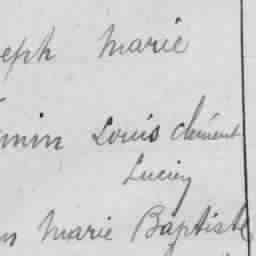 eph Marie
min Louis Clément
Lucien
n Marie Baptiste